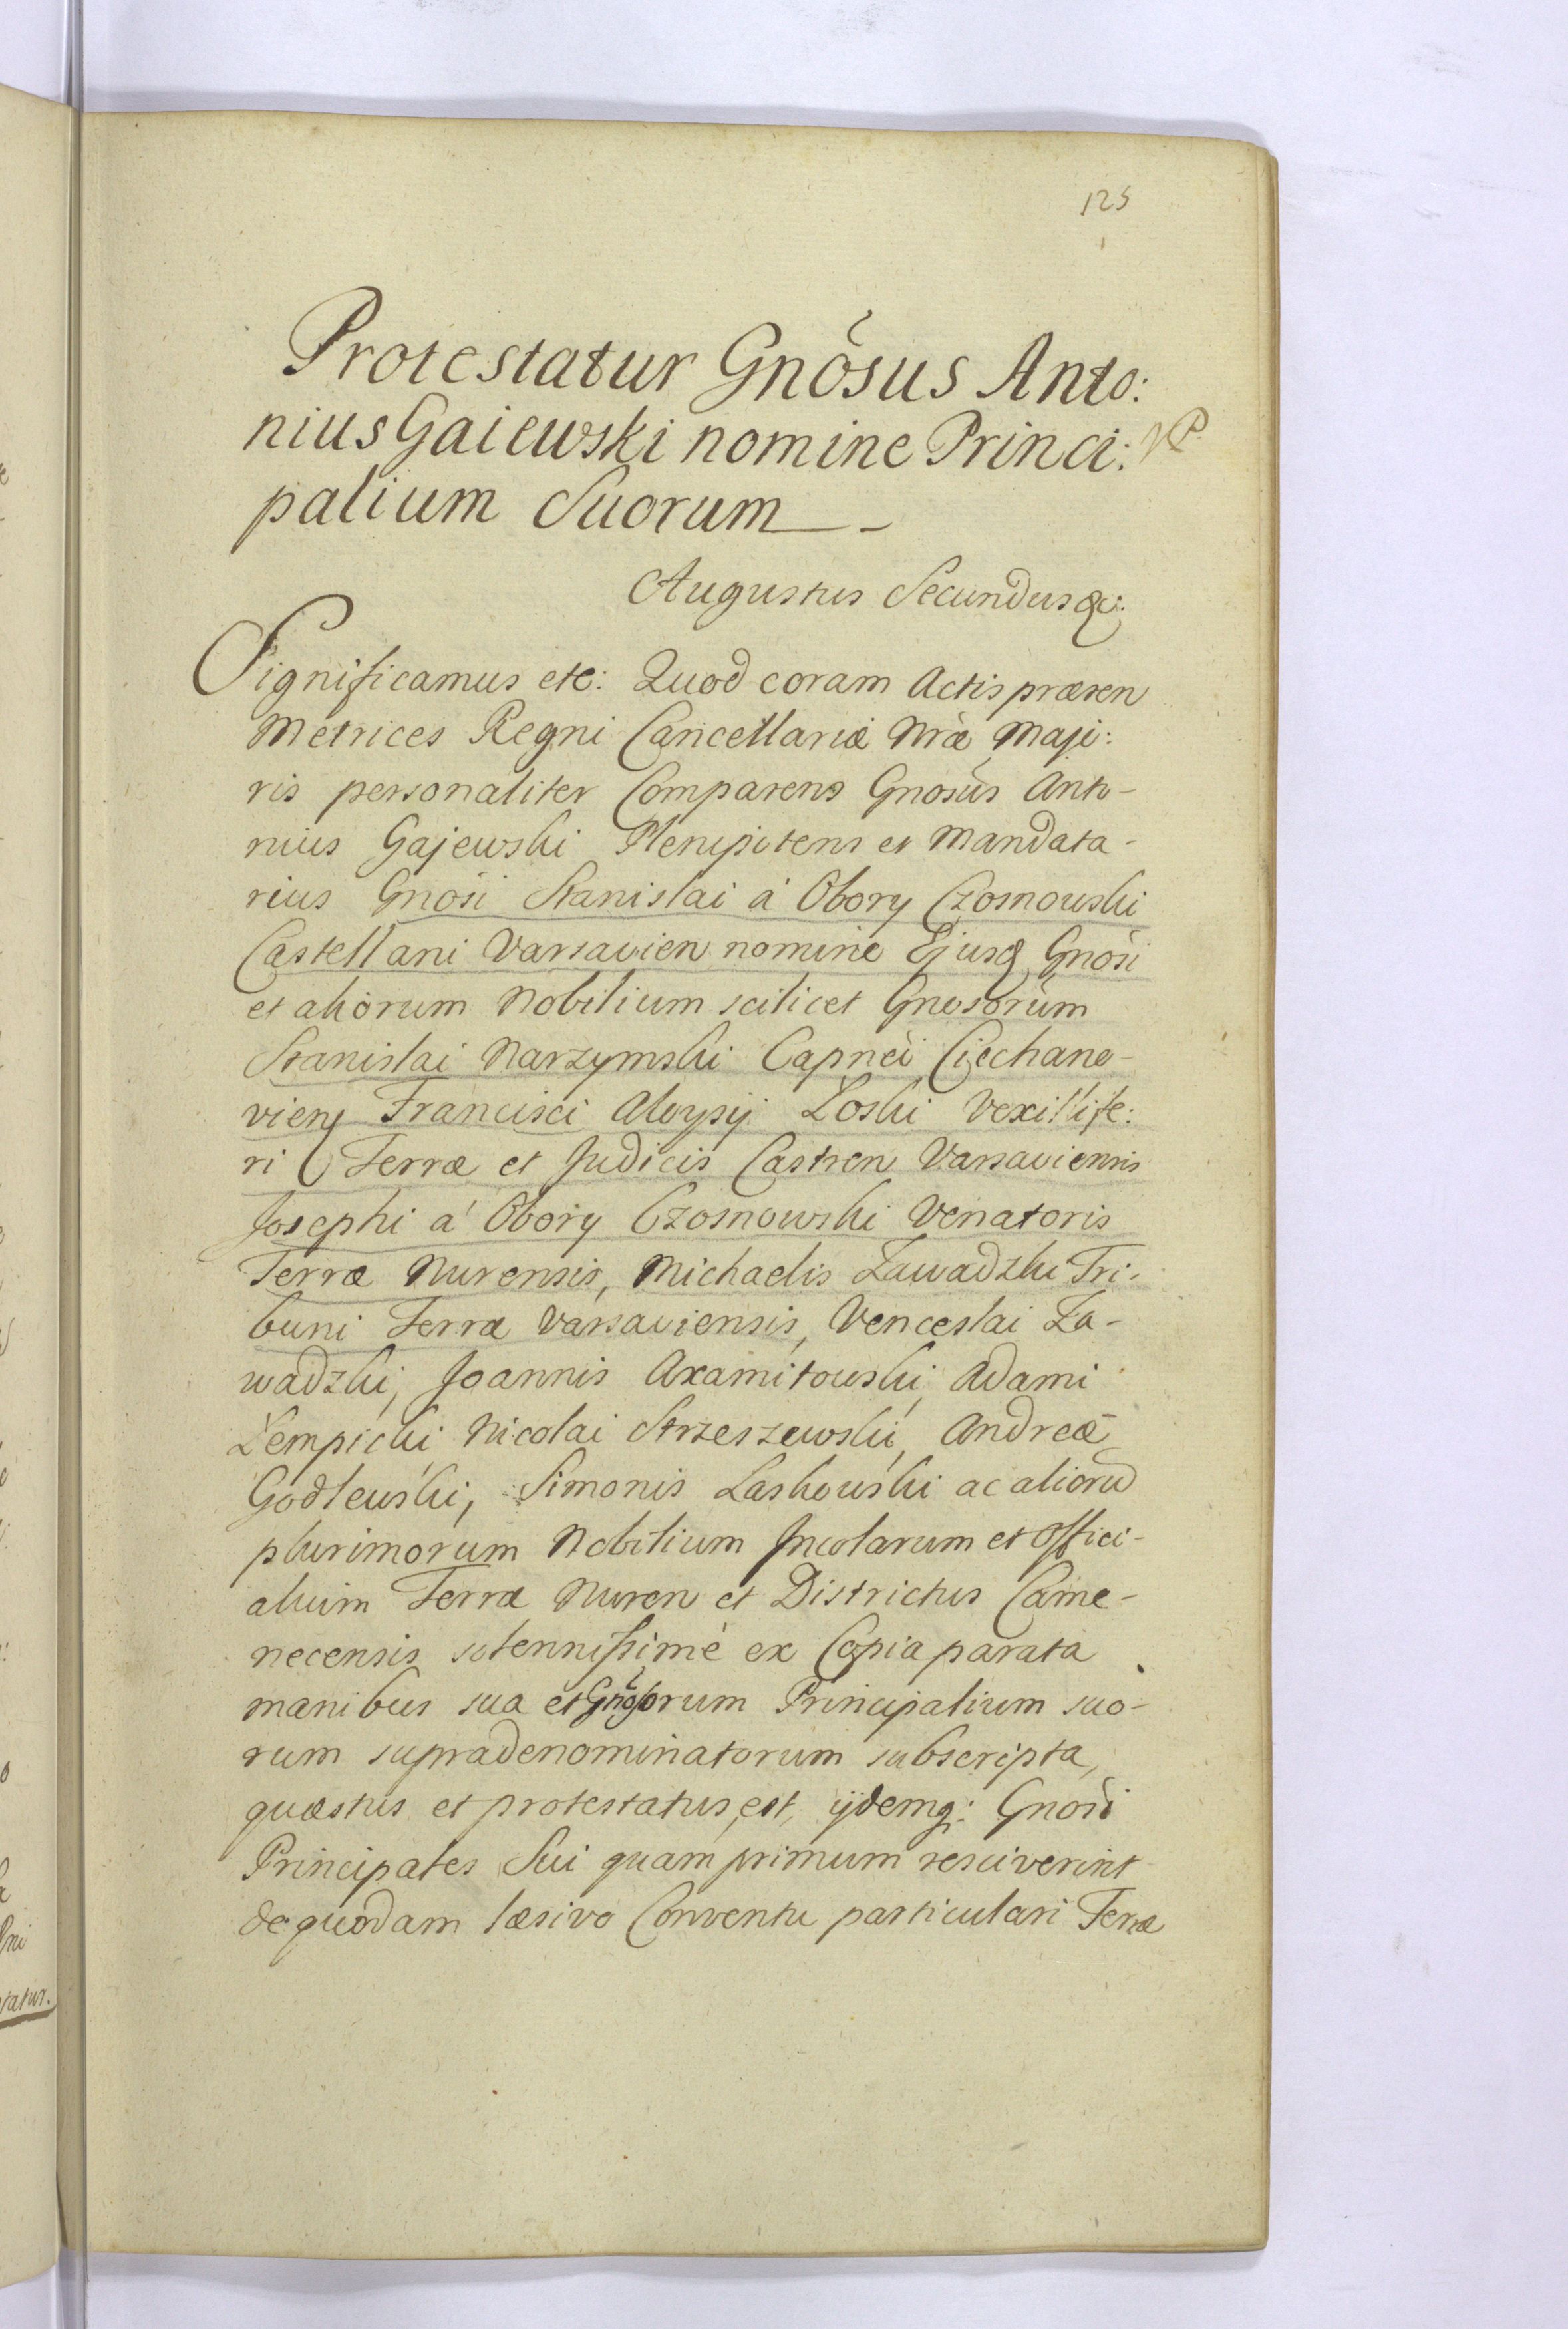 125
Protestatur Gnôsus Anto:
nius Gaiewski nomine Princi:
palium Suorum
Augustus Secundus &c:
Significamus etc: Quod coram Actis præsen
Metrices Regni Cancellariæ Nræ Maje:
ris personaliter Comparens Gnosùs Anto-
nius Gajewski Plenipotens et Mandata-
rius Gnosi Stanislai á Obory Czosnowski
Castellani Varsavien nomine Ejusq Gnosi
et aliorum Nobilium scilicet Gnosorùm
Stanislai Narzymski Capnei Ciechano-
vien Francisci Aloysij Łoski Vexillife:
ri Terræ et Judicis Castren Varsaviensis
Josephi á Obory Czosnowski Venatoris
Terræ Nurensis, Michaelis Zawadzki Tri-
buni Terræ Varsaviensis, Venceslai Za-
wadzki, Joannis Axamitowski, Adami
Łempicki, Nicolai Strzeszewski, Andreæ
Godlewski, Simonis Laskowski ac aliorũ
plurimorum Nobilium Incolarum et Offici-
alium Terræ Nuren et Districtus Came-
necensis solennissimè ex Copia parata
manibus sua et Gnosorum Principalium suo-
rum supradenominatorum subscripta,
quæstus et protestatus est, ijdemq: Gnosi
Principales Sui quam primum resciverint
de quodam læsivo Conventu particulari Terræ